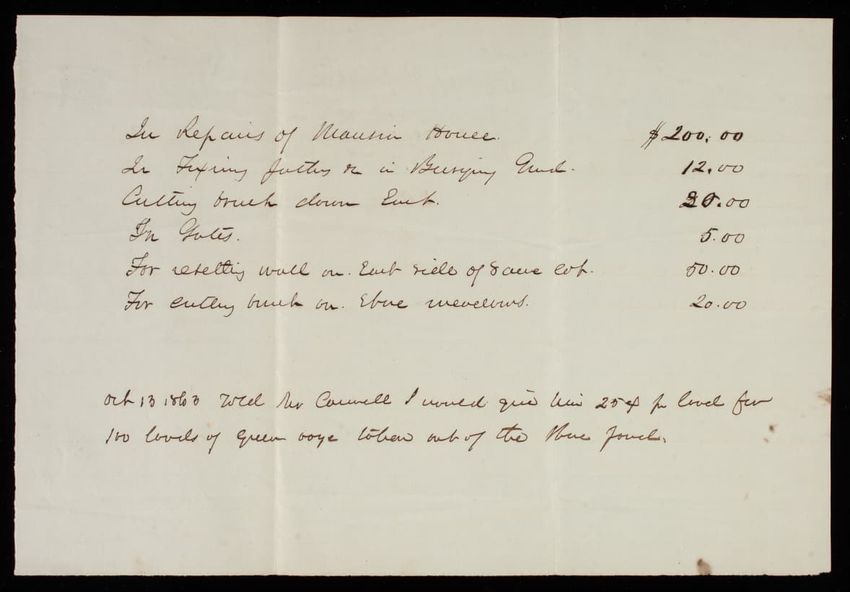 In Repairs of Mansion House. $200.00
In Fixing paths &c in Burying Grnd. 12.00
Cutting brush down East. 20.00
In Gates. 5.00
For resetting wall on East side of same lot. 50.00
For cutting brush on Shore meadows. 20.00
Oct 13 1863 Told Mr Carroll I would give him 25 ¢ pr load for
100 loads of green taken out of the Shore pond.